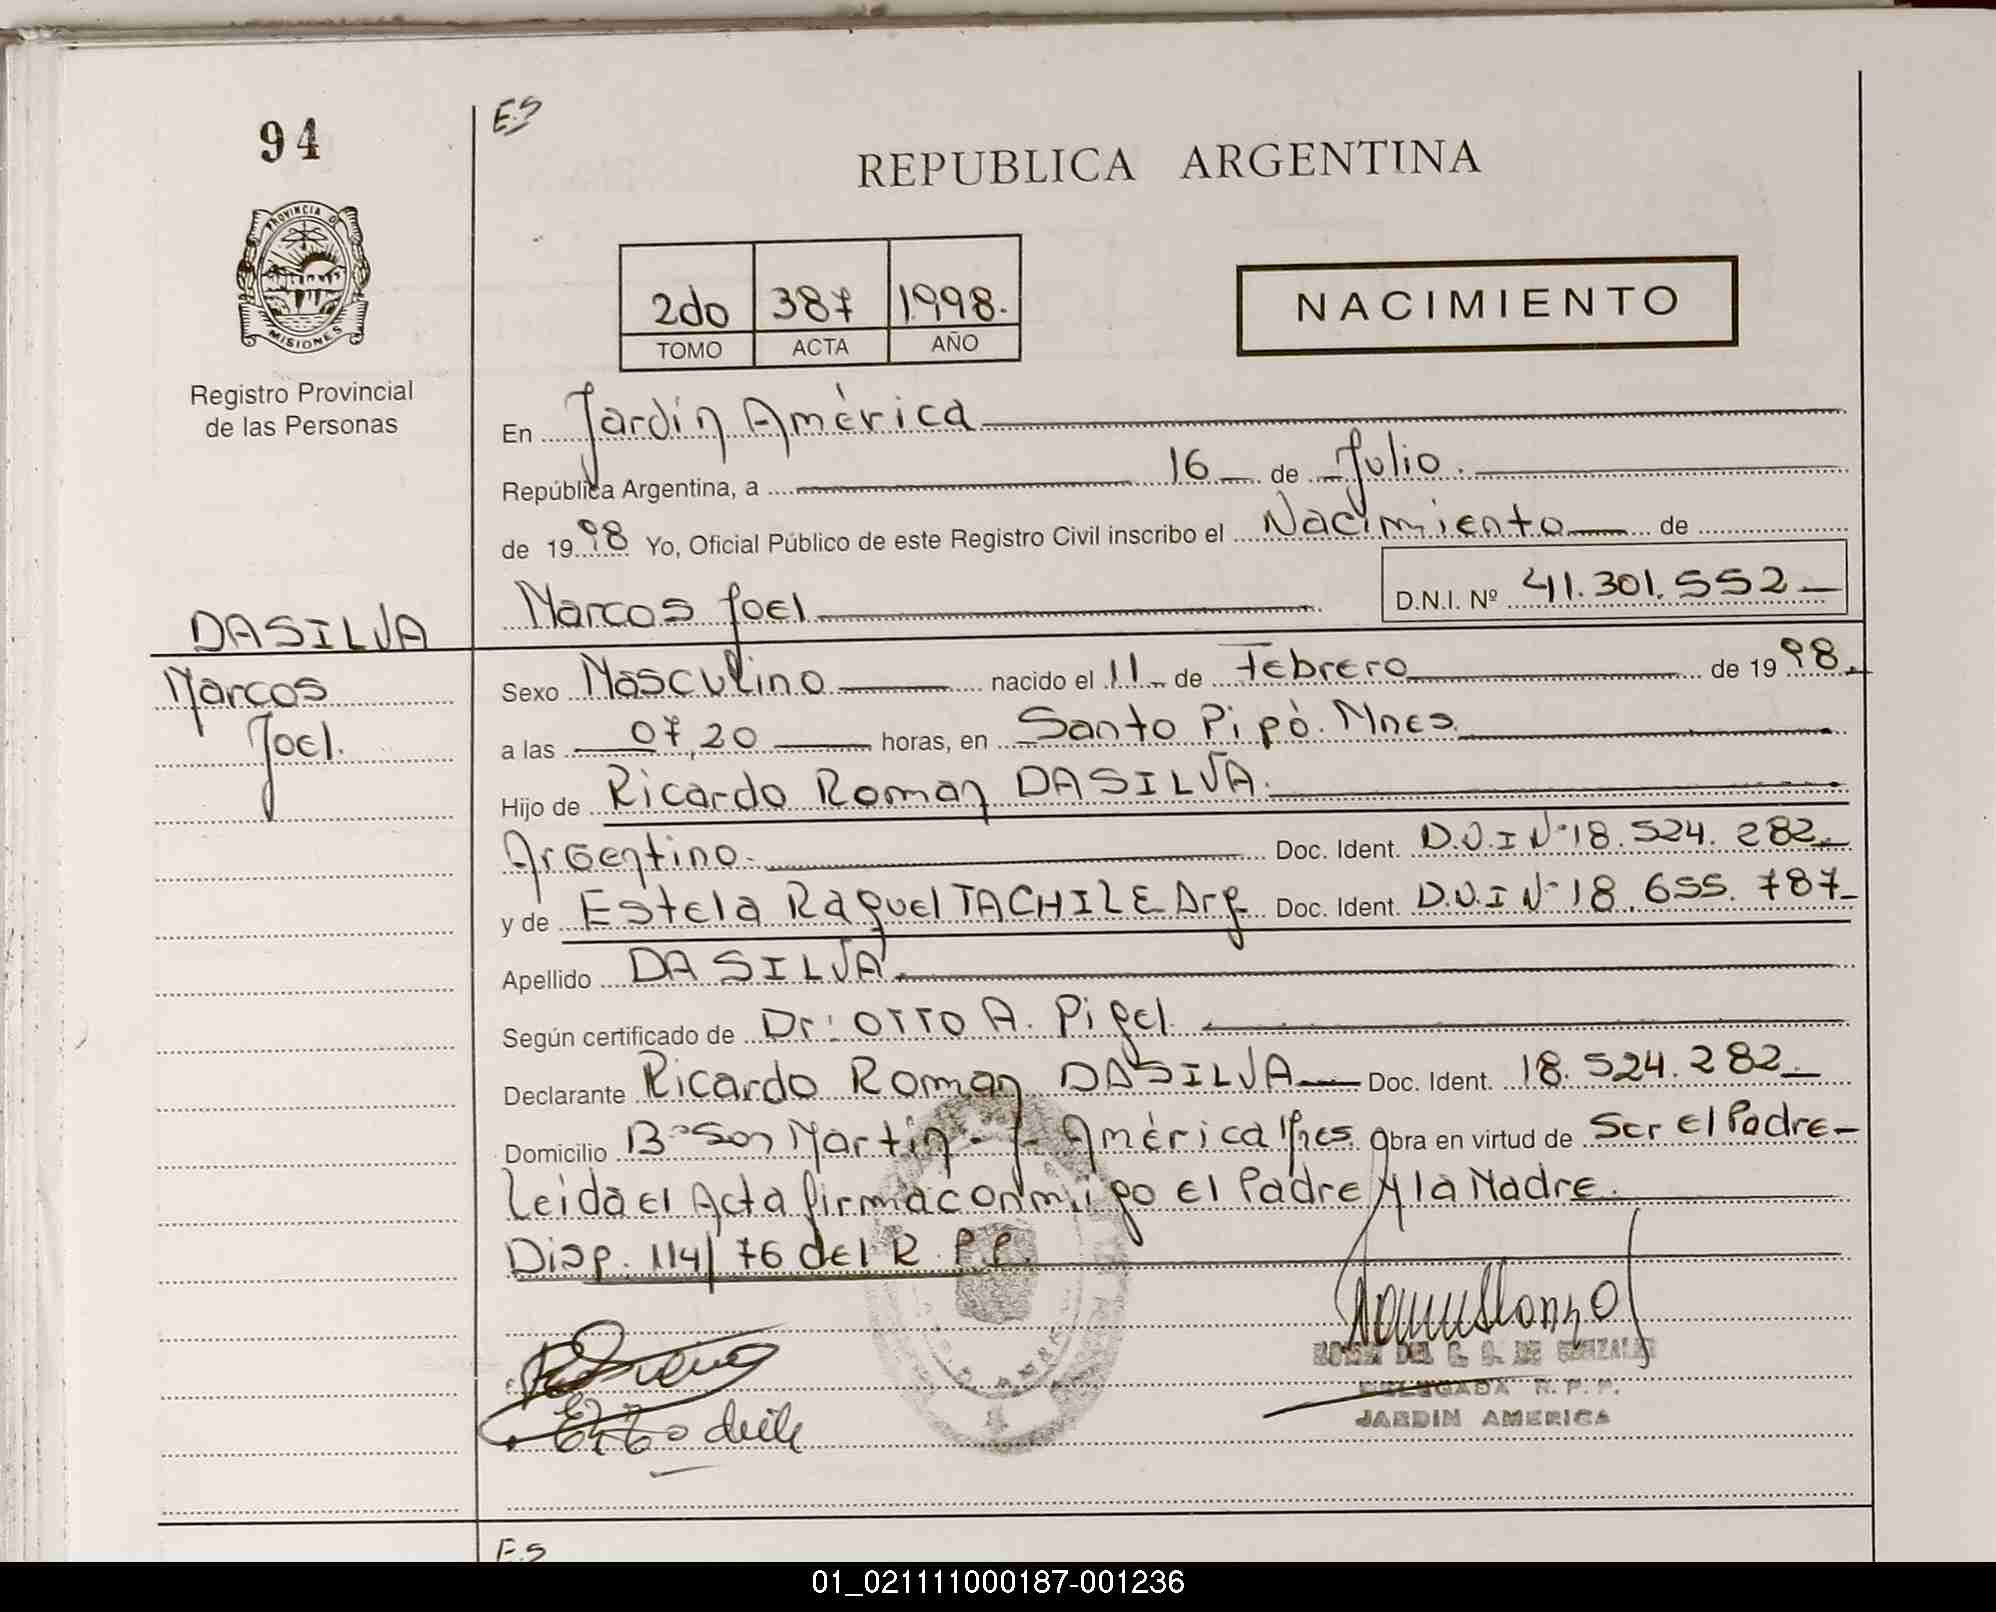 94
E.S
REPUBLICA ARGENTINA
PROVINCIA D
MISIONES
Registro Provincial
de las Personas
2do 387 1.998.
TOMO ACTA AÑO
NACIMIENTO
En Jardín América
República Argentina, a 16 de Julio.
de 1998 Yo, Oficial Público de este Registro Civil inscribo el Nacimiento de
Marcos Joel D.N.I. Nº 41.301.552
DASILVA
Marcos
Joel.
Sexo Masculino nacido el 11 de Febrero de 1998.
a las 07,20 horas, en Santo Pipó. Mnes.
Hijo de Ricardo Roman DASILVA.
Argentino. Doc. Ident. D.N.I Nº 18.524.282.
y de Estela Raquel TACHILE Arg Doc. Ident. D.N.I Nº 18.655.787
Apellido DA SILVA.
Según certificado de Dr: OTTO A. Pigel
Declarante Ricardo Roman DASILVA Doc. Ident. 18.524.282
Domicilio Bº San Martin - J. América Mnes. Obra en virtud de Ser el Padre
Leida el Acta firma conmigo el Padre y la Madre.
Disp. 114/76 del R.P.P.
DE GONZALEZ
DELEGADA R. P. P.
JARDIN AMERICA
E.S
01_021111000187-001236